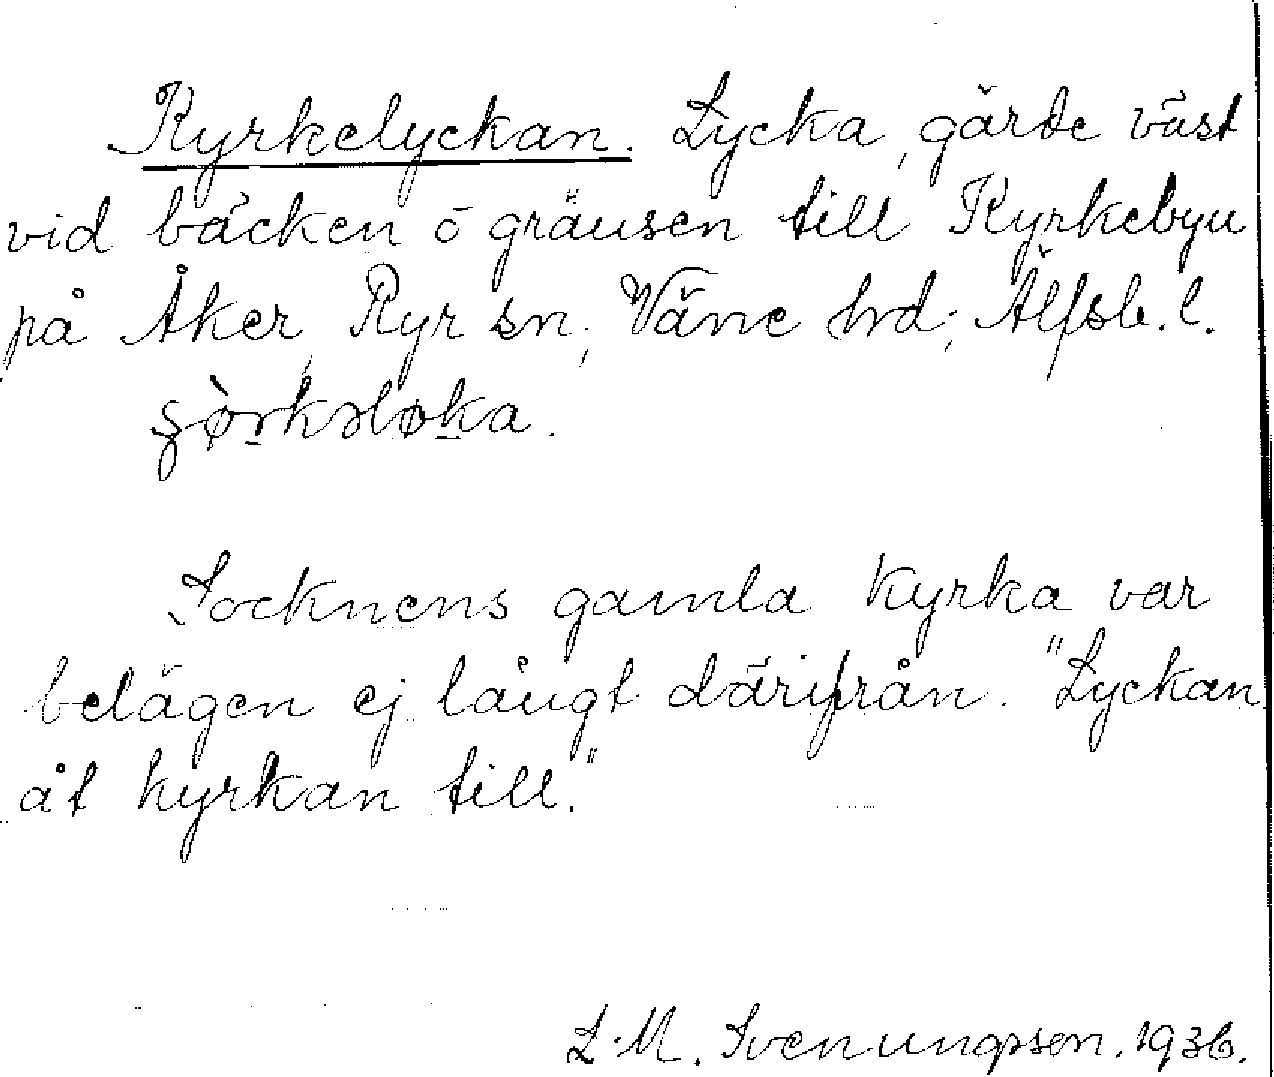 Kyrkelyckan. Lycka, gärde väst
vid bäcken o gränsen till Kyrkebyn
på Åker, Ryr sn, Väne hd, Älfsb. l.
Socknens gamla kyrka var
belägen ej långt därifrån. "Lyckan
åt kyrkan till."
L. M. Svenungsson. 1936.